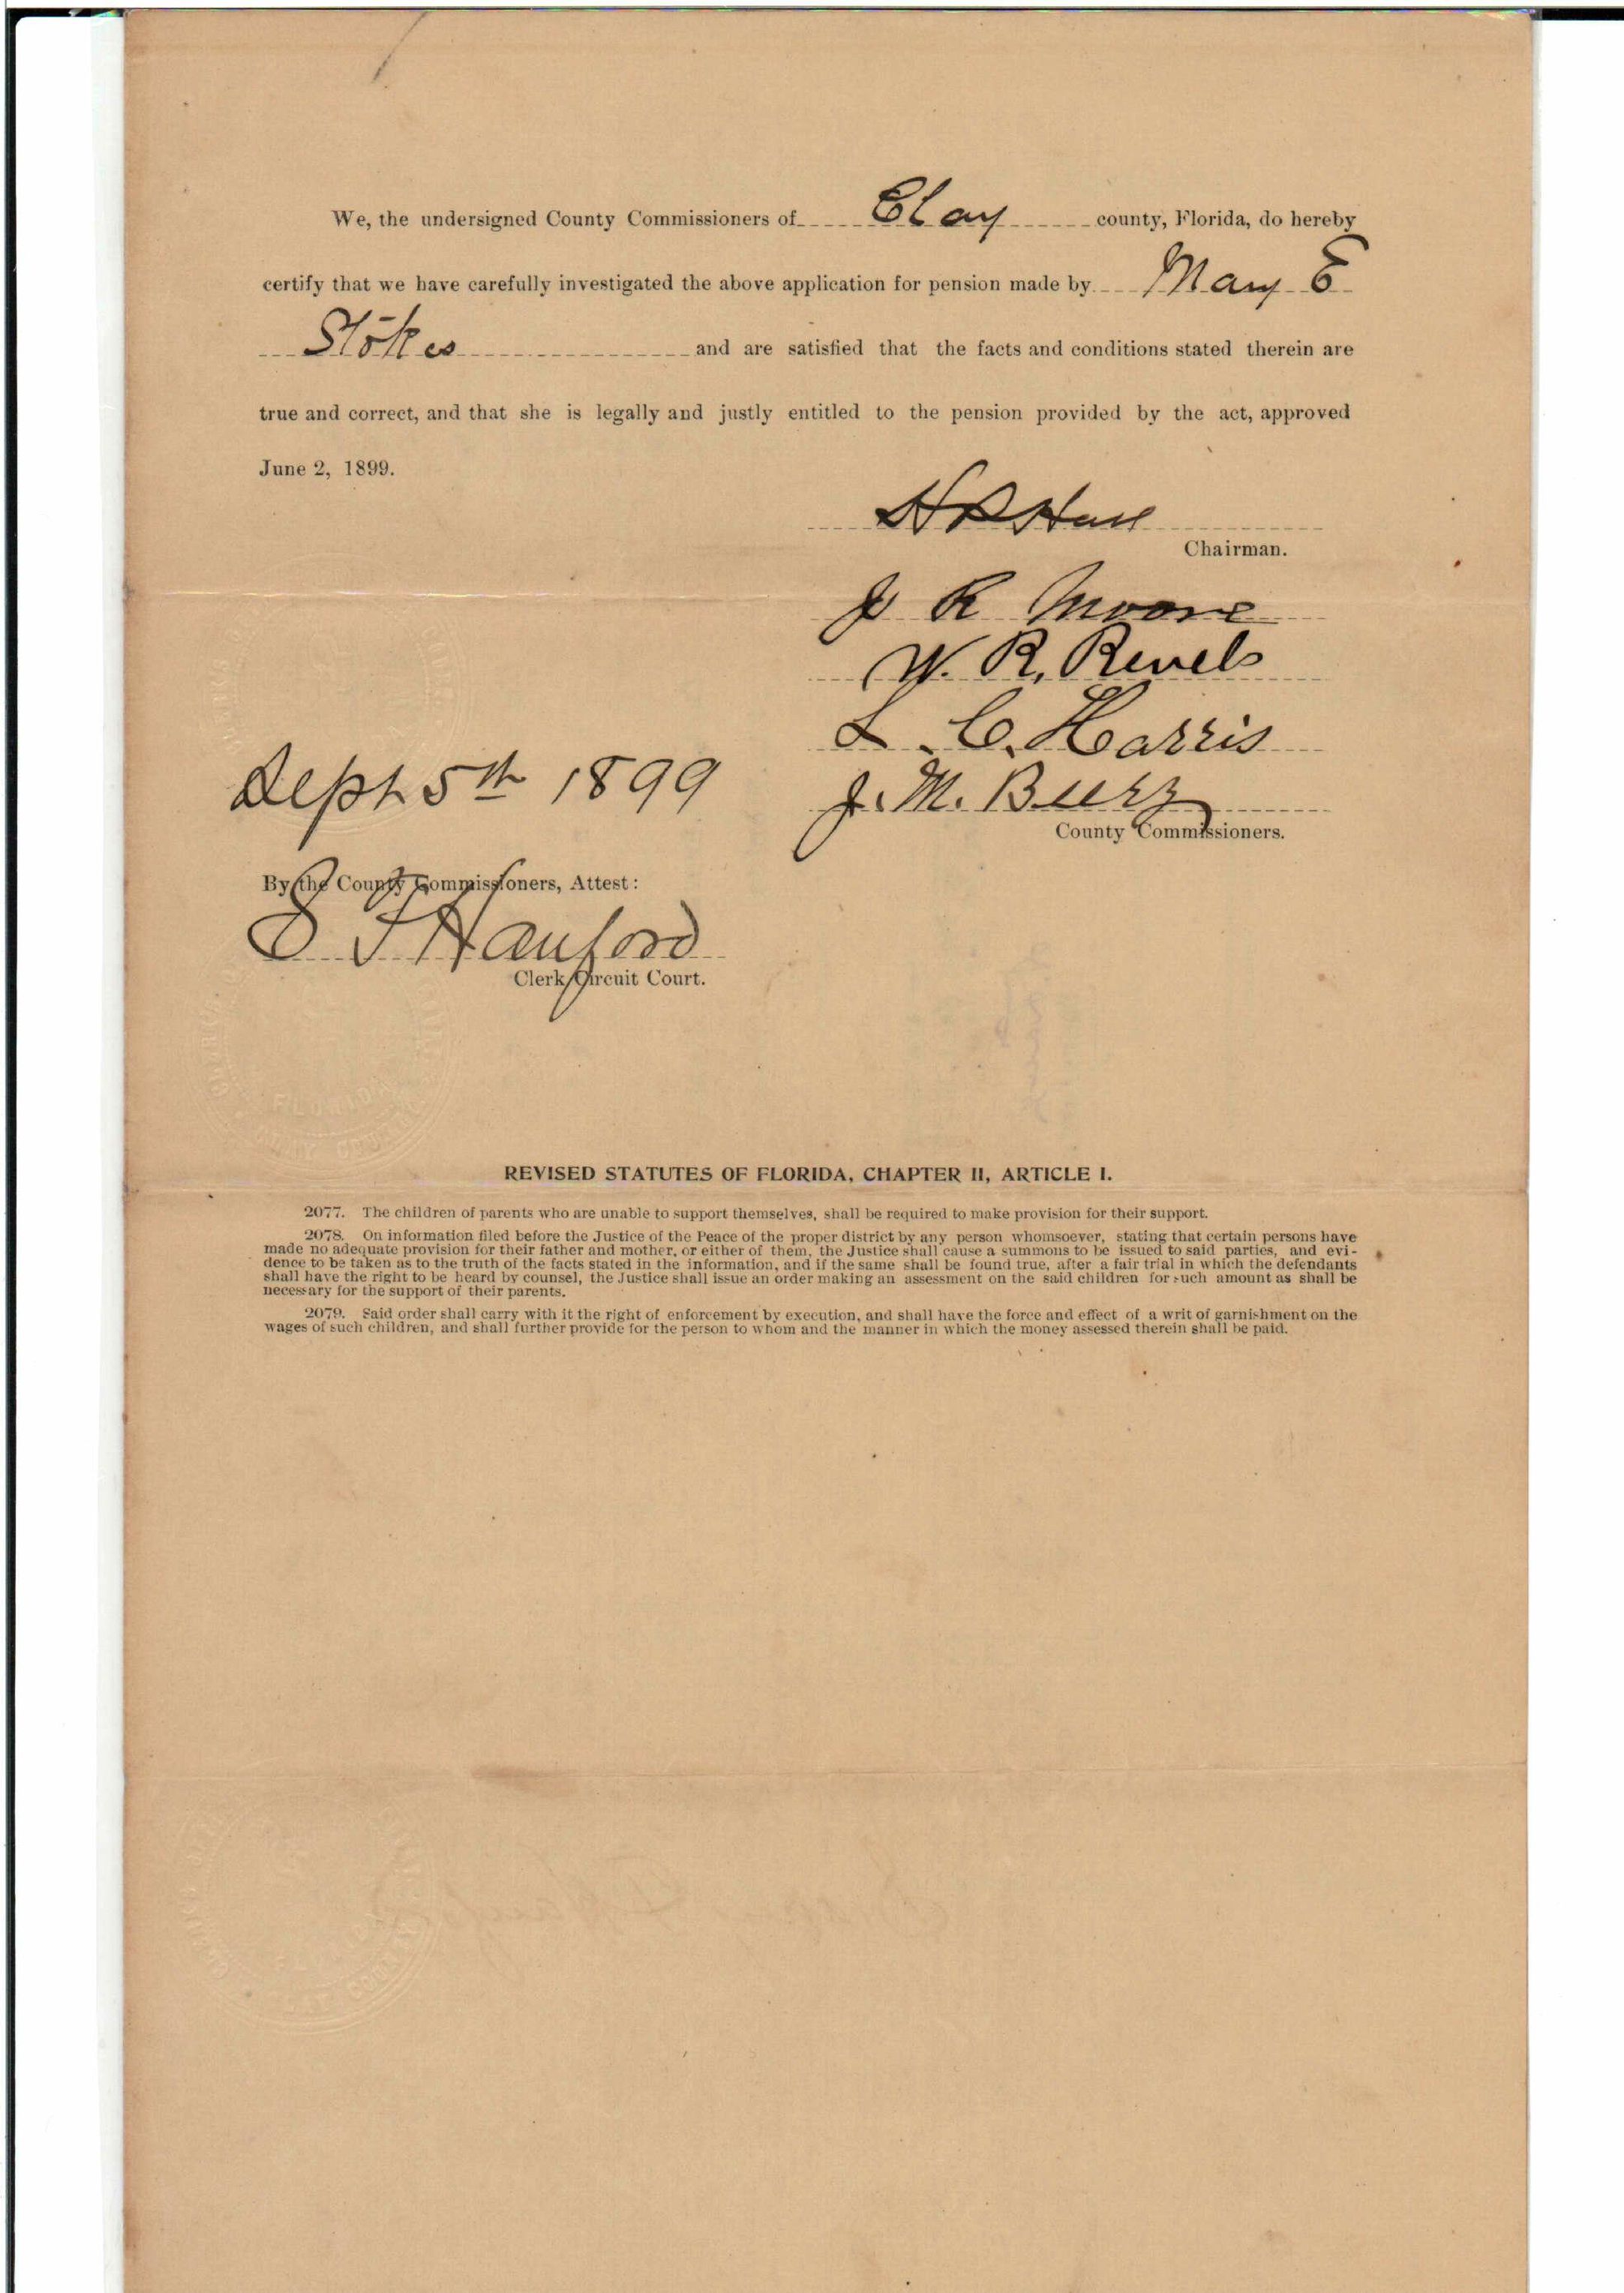 We, the undersigned County Commissioners of Clay county, Florida, do hereby
certify that we have carefully investigated the above application for pension made by Mary E
Stokes and are satisfied that the facts and conditions stated therein are
true and correct, and that she is legally and justly entitled to the pension provided by the act, approved
June 2, 1899.
Hall
Chairman.
J R Moore
W. R. Revels
L. C. Harris
Sept 5th 1899
J. M.
County Commissioners.
By the County Commissioners, Attest:
Hanford
Clerk Circuit Court.
FLORIDA
REVISED STATUTES OF FLORIDA, CHAPTER II, ARTICLE I.
2077. The children of parents who are unable to support themselves, shall be required to make provision for their support.
2078. On information filed before the Justice of the Peace of the proper district by any person whomsoever, stating that certain persons have
made no adequate provision for their father and mother, or either of them, the Justice shall cause a summons to be issued to said parties, and evi-
dence to be taken as to the truth of the facts stated in the information, and if the same shall be found true, after a fair trial in which the defendants
shall have the right to be heard by counsel, the Justice shall issue an order making an assessment on the said children for such amount as shall be
necessary for the support of their parents.
2079. Said order shall carry with it the right of enforcement by execution, and shall have the force and effect of a writ of garnishment on the
wages of such children, and shall further provide for the person to whom and the manner in which the money assessed therein shall be paid.